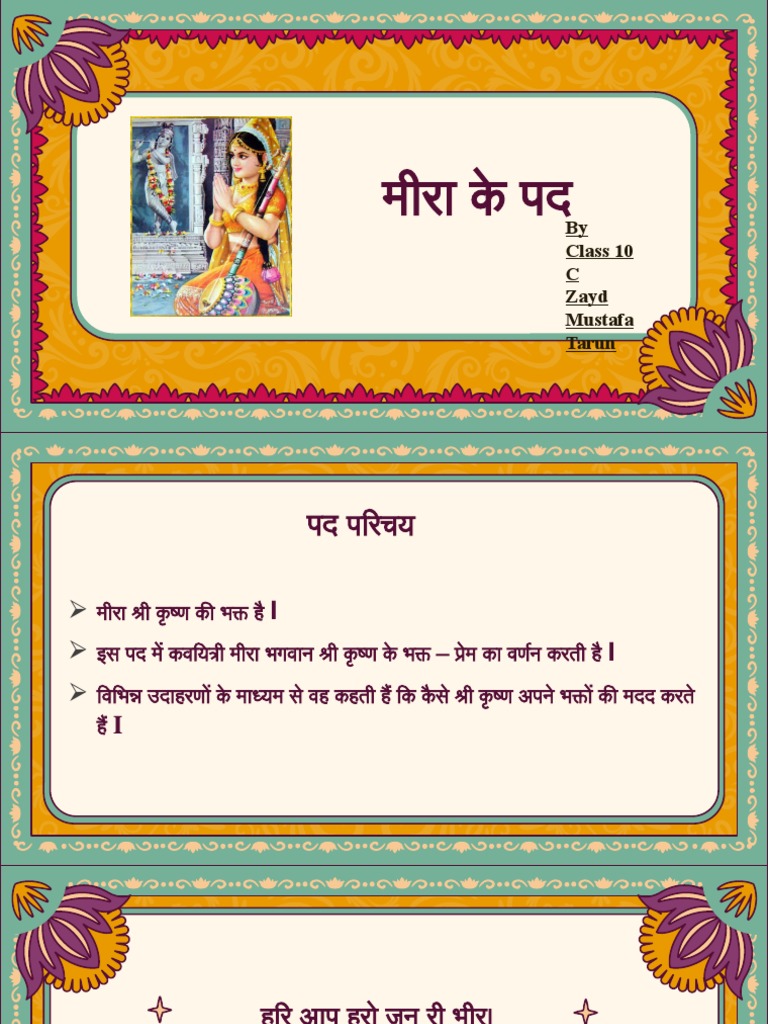 मीरा के पद
By
Class 10
C
Zayd
Mustafa
Tarun
पद परिचय
मीरा श्री कृष्ण की भक्त है I
इस पद में कवयित्री मीरा भगवान श्री कृष्ण के भक्त – प्रेम का वर्णन करती है I
विभिन्न उदाहरणों के माध्यम से वह कहती हैं कि कैसे श्री कृष्ण अपने भक्तों की मदद करते
हैं I
हरि आप हरो जन री भीर।